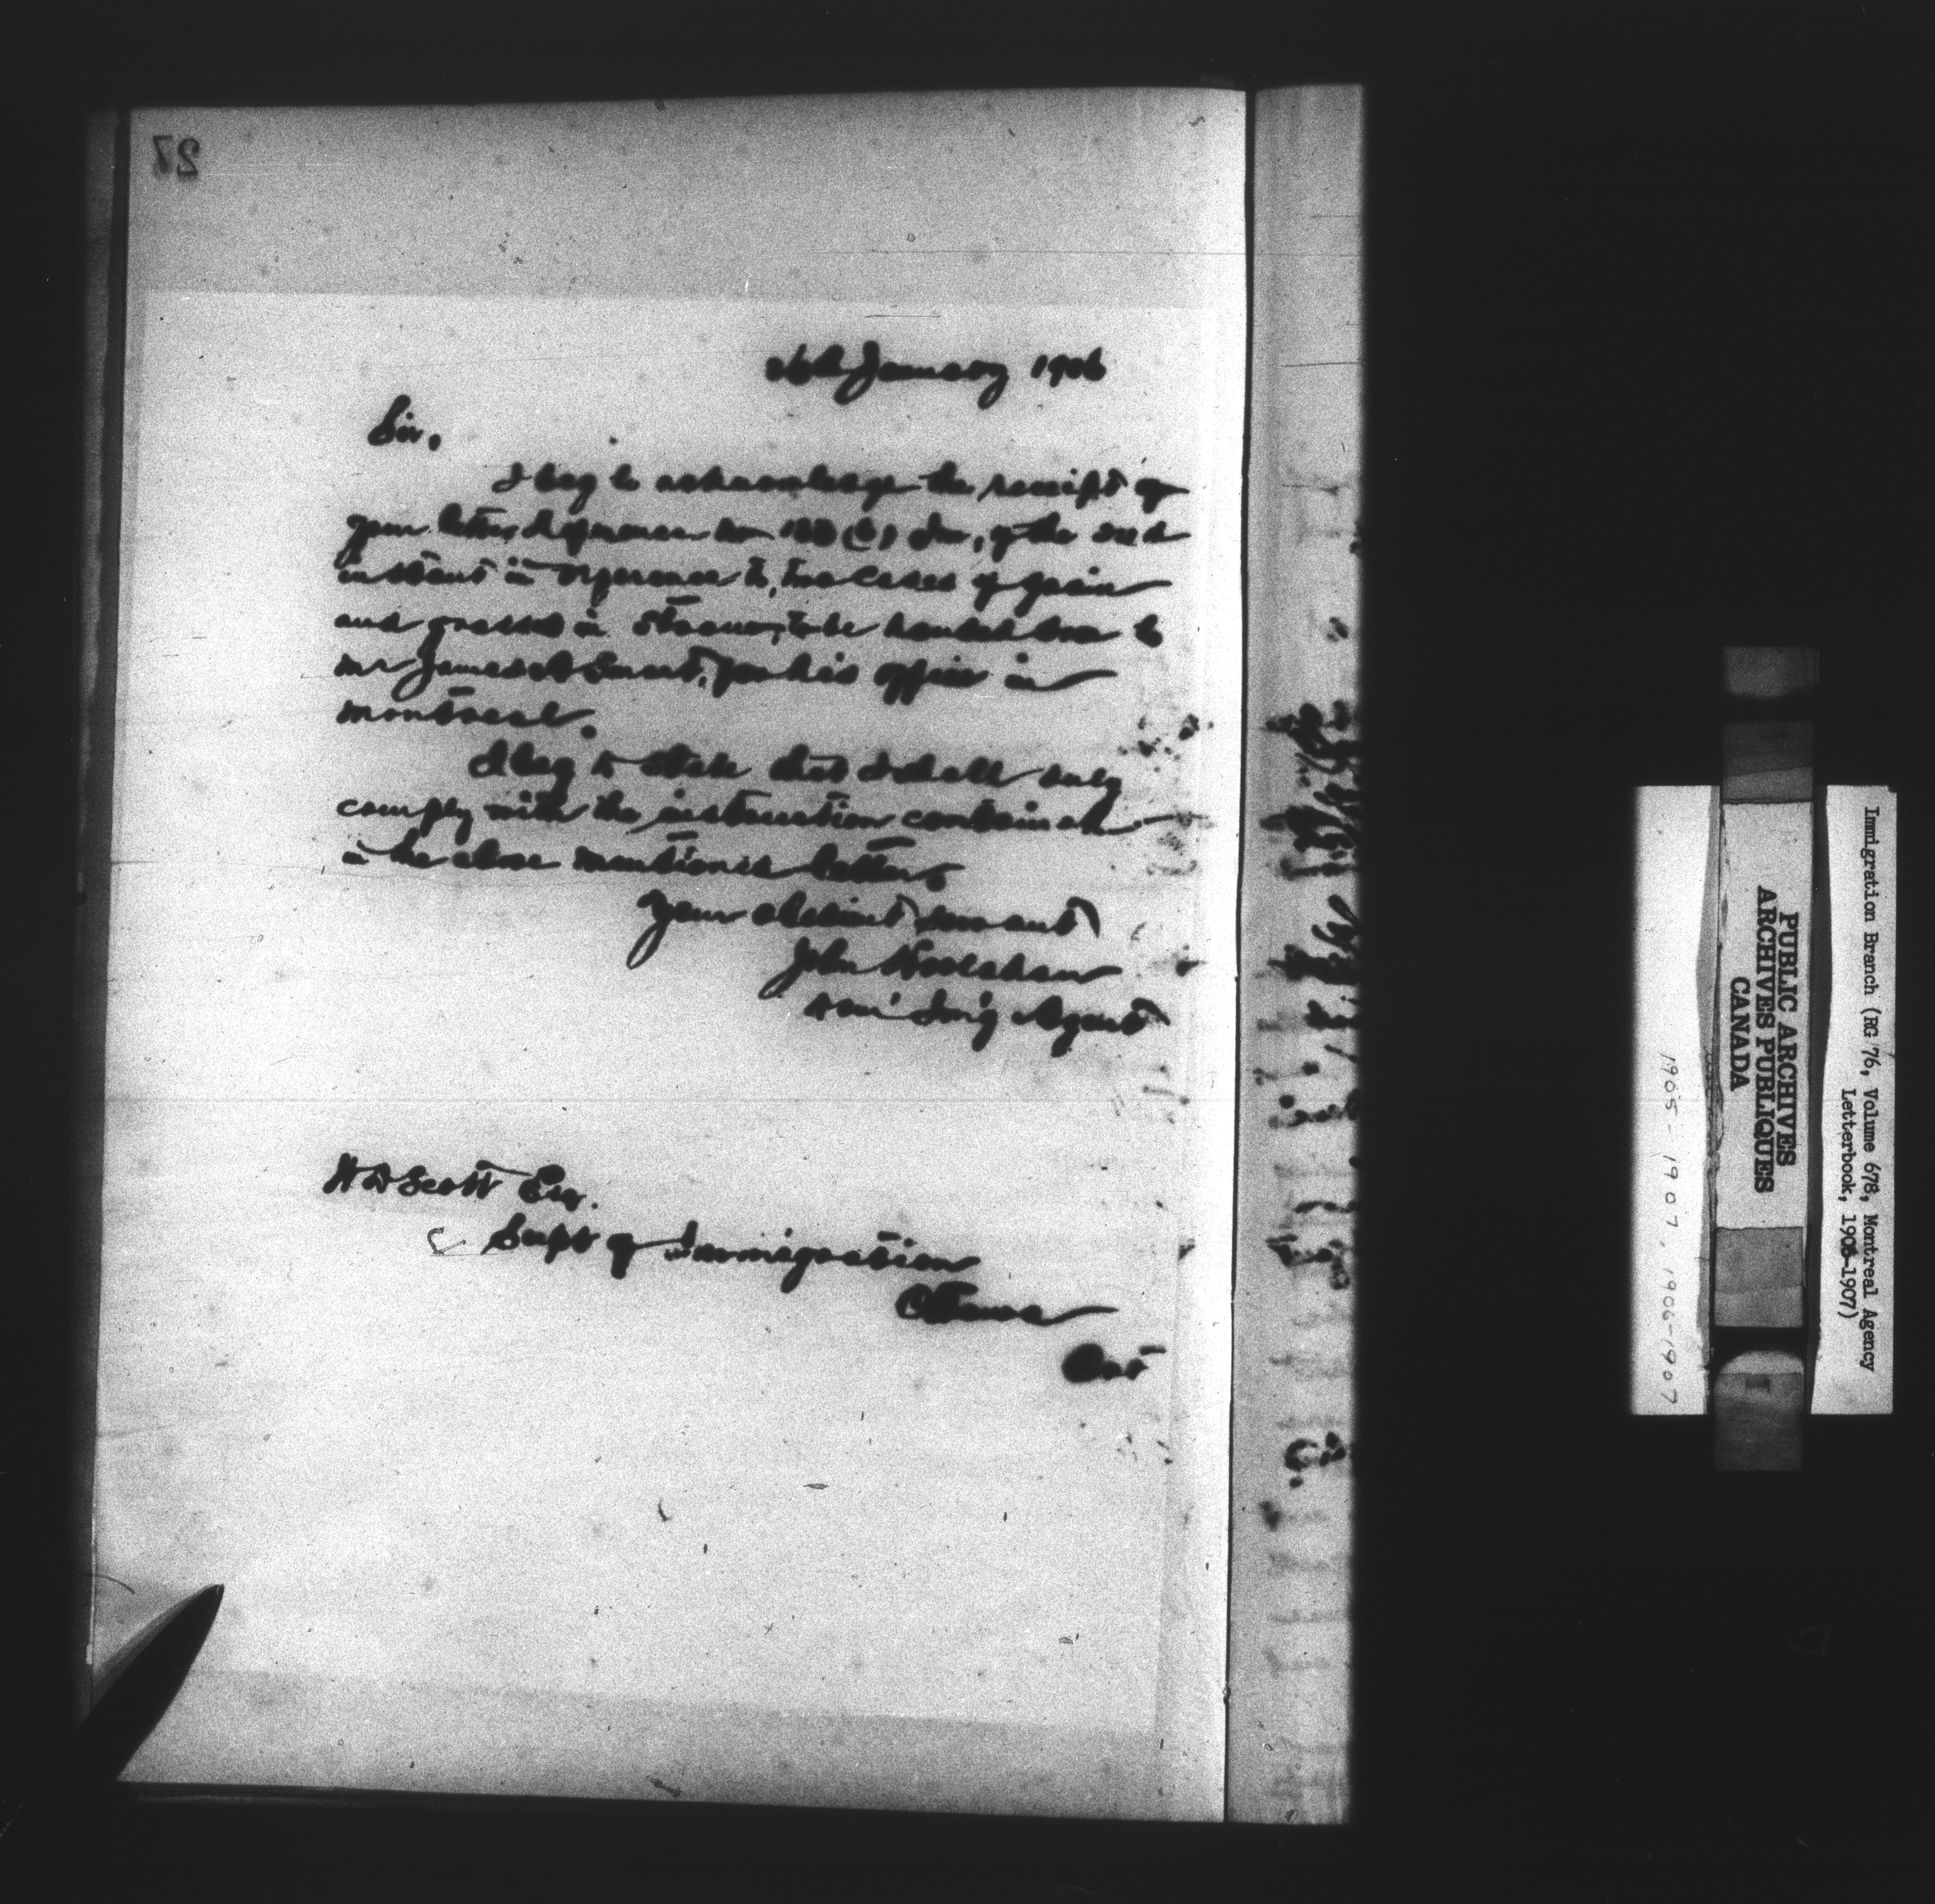 27
26th January 1906
Sir,
I beg to acknowledge the receipt of
your letter, Reference No (C) Im, of the
instant in reference to, two Cases of grain
and grasses in straw, to be handed over to
Mr James A Smart, for his office in
Montreal.
I beg to state that I shall duly
comply with the instruction contained
in the above mentioned letter.
Your obedient servant
John Hoolahan
Dom' Im'g Agent
W D Scott Esq.
Supt of Immigration
Ottawa
Ont
Immigration Branch (RG 76, Volume 678, Montreal Agency
Letterbook, 1906-1907)
PUBLIC ARCHIVES
ARCHIVES PUBLIQUES
CANADA
1905-1907, 1906-1907